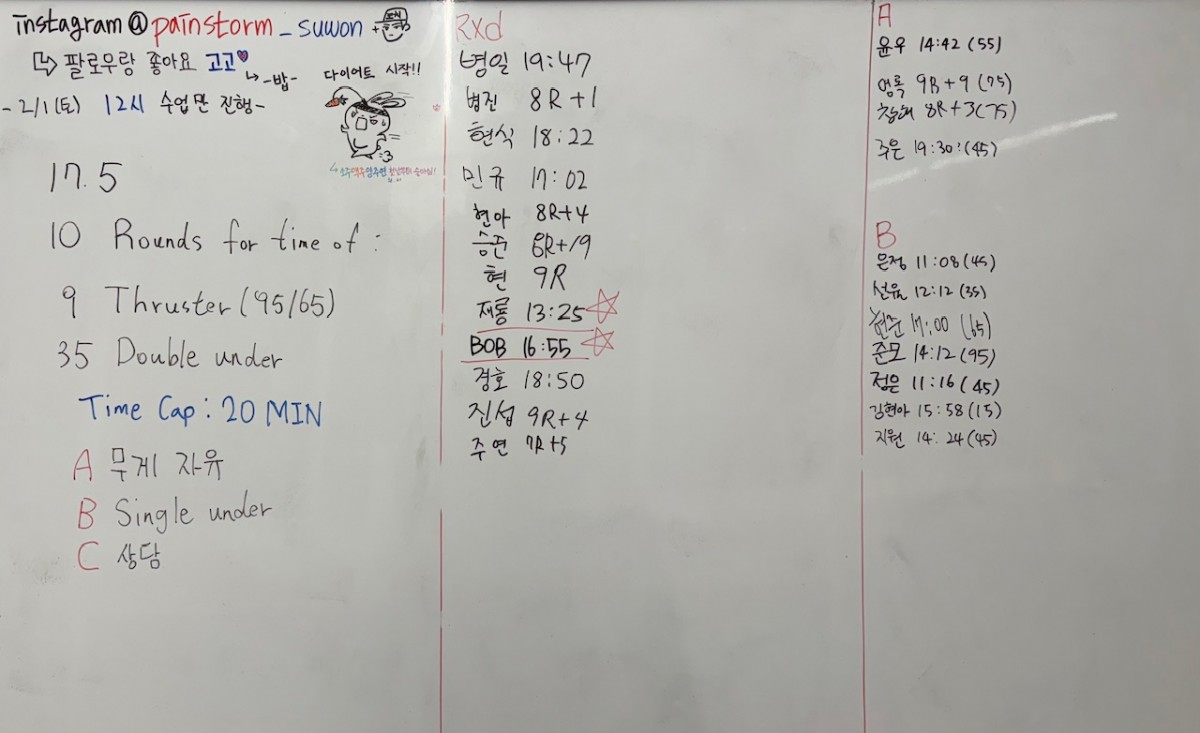 instagram@painstorm_suwon
↳ 팔로우랑 좋아요 고고♥
↳ -밥-
- 2/1(토) 12시 수업만 진행-
다이어트 시작!!
17.5
10 Rounds for time of :
9 Thruster (95/65)
35 Double under
Time Cap : 20 MIN
A 무게 자유
B Single under
C 상담
Rxd
병일 19:47
병진 8R+1
현식 18:22
민규 17:02
현아 8R+4
승준 6R+19
현 9R
재룡 13:25 ☆
BOB 16:55 ☆
경호 18:50
진섭 9R+4
주연 7R+5
A
윤우 14:42 (55)
영록 9R+9 (75)
8R+3(75)
주은 19:30 (45)
B
은정 11:08(45)
선유 12:12 (35)
현준 17:00 (65)
준모 14:12(95)
정은 11:16(45)
김현아 15:58(15)
지원 14:24(45)